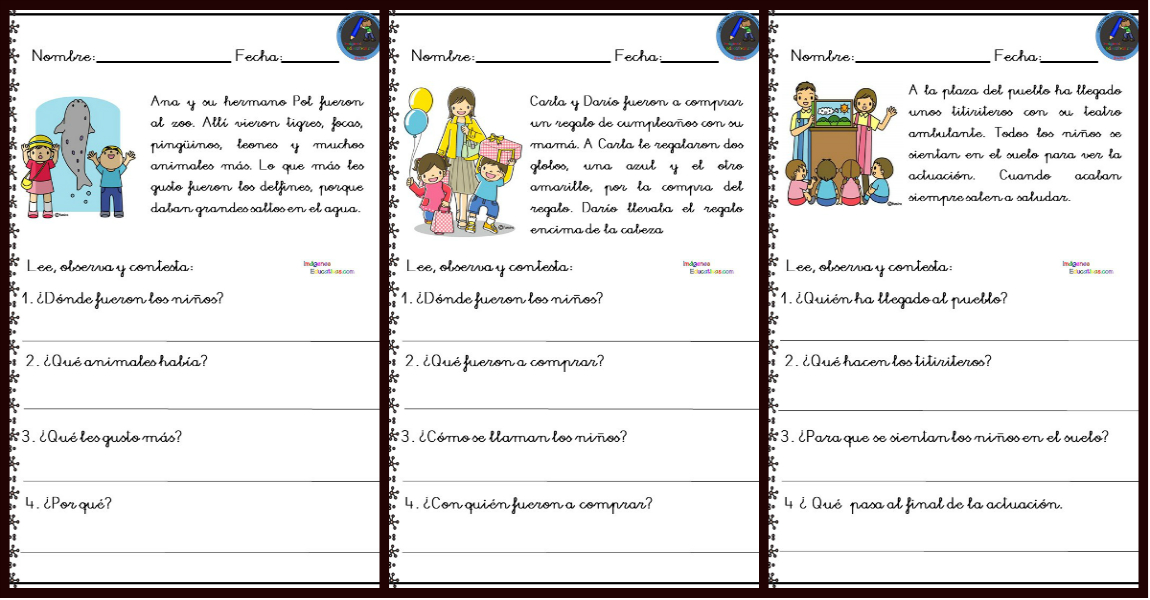 Nombre:_______________ Fecha:_______
Ana y su hermano Pol fueron
al zoo. Allí vieron tigres, focas,
pingüinos, leones y muchos
animales más. Lo que más les
gusto fueron los delfines, porque
daban grandes saltos en el agua.
Lee, observa y contesta:
Imágenes
Educativas.com
1. ¿Dónde fueron los niños?
2. ¿Qué animales había?
3. ¿Qué les gusto más?
4. ¿Por qué?
Nombre:_______________ Fecha:_______
Carla y Darío fueron a comprar
un regalo de cumpleaños con su
mamá. A Carla le regalaron dos
globos, una azul y el otro
amarillo, por la compra del
regalo. Darío llevaba el regalo
encima de la cabeza
Lee, observa y contesta:
Imágenes
Educativas.com
1. ¿Dónde fueron los niños?
2. ¿Qué fueron a comprar?
3. ¿Cómo se llaman los niños?
4. ¿Con quién fueron a comprar?
Nombre:_______________ Fecha:_______
A la plaza del pueblo ha llegado
unos titiriteros con su teatro
ambulante. Todos los niños se
sientan en el suelo para ver la
actuación. Cuando acaban
siempre salen a saludar.
Lee, observa y contesta:
Imágenes
Educativas.com
1. ¿Quién ha llegado al pueblo?
2. ¿Qué hacen los titiriteros?
3. ¿Para que se sientan los niños en el suelo?
4 ¿ Qué pasa al final de la actuación.